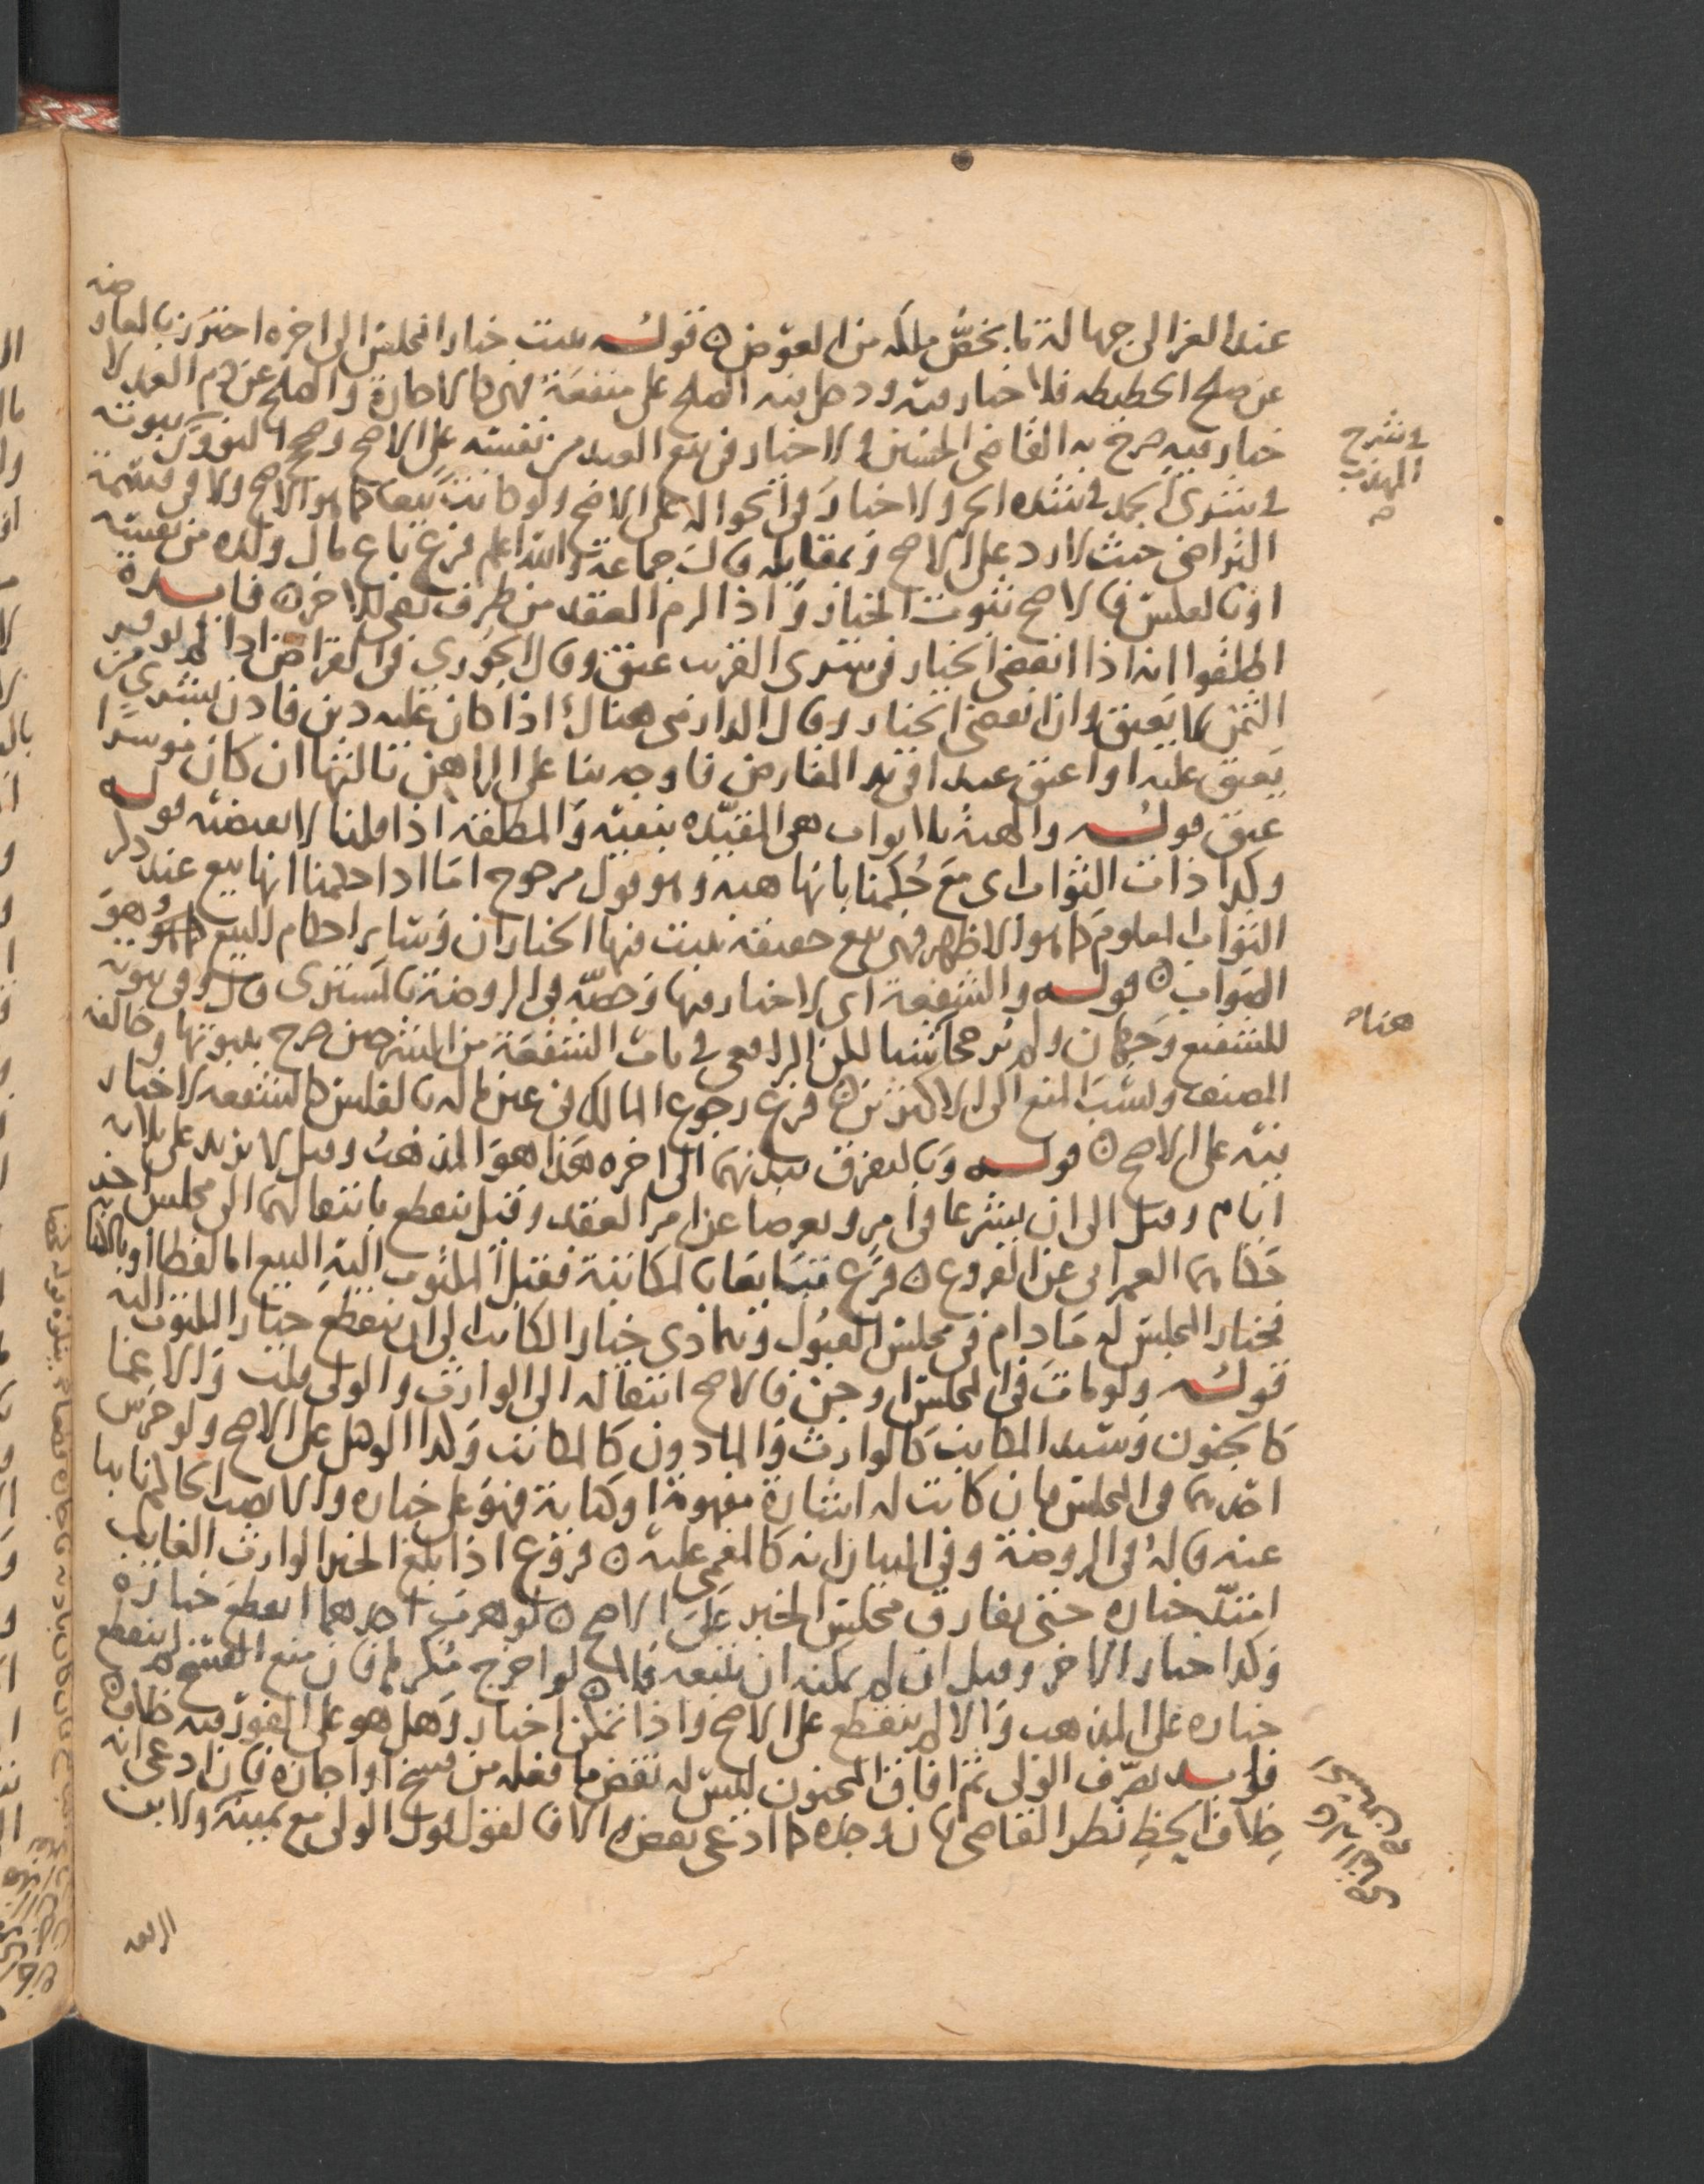 عند الغزالى جهالة ما يخص ملكه من العوض ۞ قوله يثبت خيار المجلس الى اخره احترز بالمعاوضة
عن صلح الحطيطه فلا خيار فيه ودخل فيه الصلح على منفعة فهى كالاجارة والصلح عن دم العمد لا
خيار فيه صرح به القاضى الحسين ولا خيار فى بيع العبد من نفسه على الاصح وصحح النووى ثبوته
فى شرى الجمد فى شده الحر ولا خيار فى الحواله على الاصح ولو كانت بيعا كما هو الاصح ولا فى قسمة
التراضى حيث لا رد على الاصح وبمقابله قالت جماعة والله اعلم فرع باع مال ولده من نفسه
او بالعكس فالاصح ثبوت الخيار واذا الزم العقد من طرف بقى للاخر ۞ فايدة
اطلقوا انه اذا انقضى الخيار فى شرى القريب عتق وقال الجورى فى القراض اذا لم يوفر
الثمن لم يعتق وان انقضى الخيار وقال الدارمى هناك اذا كان عليه دين فاذن بشرى من
يعتق عليه او اعتق عبدا فى يد المقارض فاوجه بنا على الراهن ثالثها ان كان موسرا
عتق قوله والهبة بلا ثواب هى المقيده بنفيه والمطلقه اذا قلنا لا تقتضيه قوله
وكذا ذات الثواب اى مع حكمنا بانها هبه وهو قول مرجوح اما اذا حكمنا انها بيع عند ذكر
الثواب المعلوم كما هو الاظهر فهى بيع حقيقه يثبت فيها الخياران وساير احكام البيع وهو
الصواب ۞ قوله والشفعة اى لا خيار فيها وخصه فى الروضة بالمشترى قال وفى ثبوته
للشفيع وجهان ولم يرجح شيا لكن الرافعى فى باب الشفعة من الشرحين صرح بثبوتها وخالفه
المصنف ونسب المنع الى الاكثرين ۞ فرع رجوع المالك فى عين ماله بالفلس كالشفعه لا خيار
فيه على الاصح ۞ قوله وبالتفرق ببدنهما الى اخره هذا هو المذهب وقيل لا يزيد على ثلاثة
ايام وقيل الى ان يشرعا فى امر ويعرضا عن امر العقد وقيل ينقطع بانتقالهما الى مجلس اخر
حكاهما العمرانى عن الفروع ۞ فرع تبايعا بالمكاتبة فقبل المكتوب اليه البيع اما لفظا او بالكتابة
فخيار المجلس له ما دام فى مجلس القبول وتمادى خيار الكاتب الى ان ينقطع خيار المكتوب اليه
قوله ولو مات فى المجلس او جن فالاصح انتقاله الى الوارث والولى قلت والاغما
كالجنون وسيد المكاتب كالوارث والماذون كالمكاتب وكذا الوكيل على الاصح ولو خرس
احدهما فى المجلس فان كانت له اشارة مفهومة او كتابة فهو على خياره والا نصب الحاكم نايبا
عنه قاله فى الروضة وفى البيان انه كالمغمى عليه ۞ فروع اذا بلغ الخبر الوارث الغايب
امتد خياره حتى يفارق مجلس الخبر على الاصح ۞ لو هرب احدهما انقطع خياره
وكذا خيار الاخر وقيل ان لم يمكنه ان يتبعه فلا ۞ لو اخرج مكرها فان منع الفسخ لم ينقطع
خياره على المذهب والا لم ينقطع على الاصح واذا تمكن اختار وهل هو على الفور فيه خلاف ۞
فايدة تصرف الولى ثم افاق المجنون ليس له نقض ما فعله من فسخ او اجازه فان ادعى انه
خلاف الحظ نظر القاضى فان وجده كما ادعى نقض والا فالقول قول الولى مع يمينه
فى شرح
المهذب
هنا